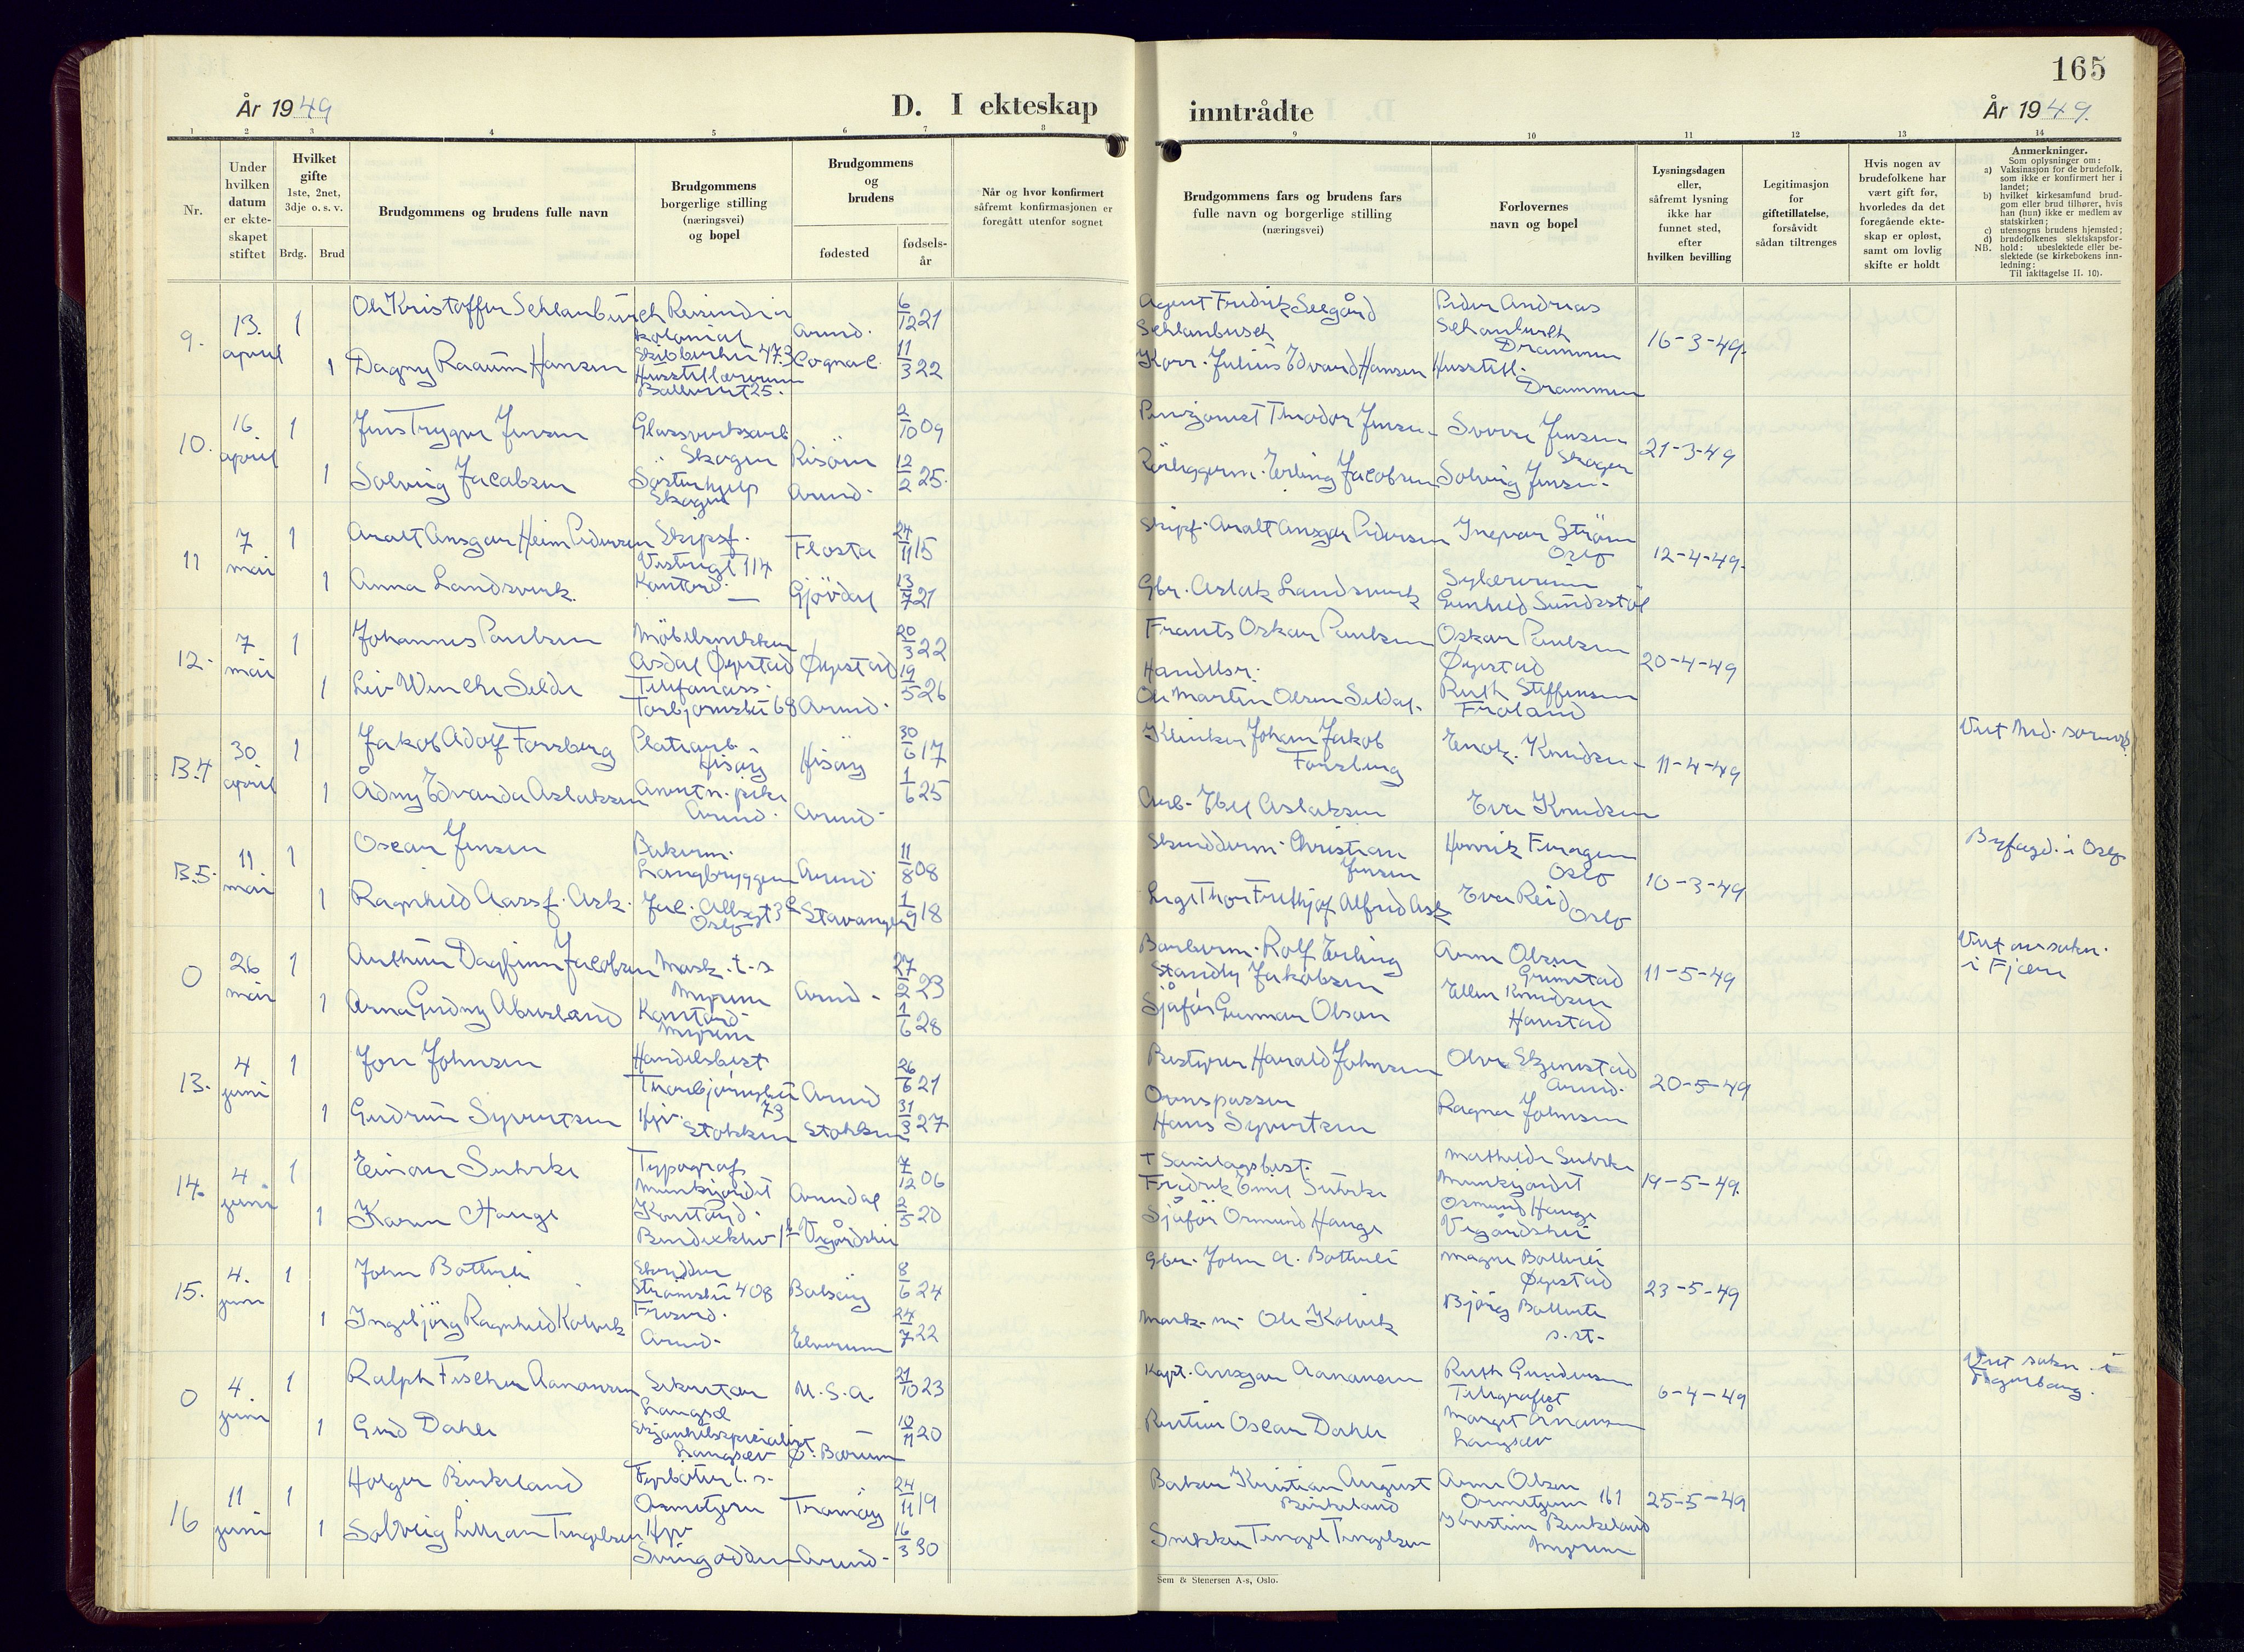 165
År 1949
D. I ekteskap inntrådte
År 1949.
1 2 3 4 5 6 7 8 9 10 11 12 13 14
Nr.
Under
hvilken
datum
er ekte-
skapet
stiftet
Hvilket
gifte
1ste, 2net,
3dje o. s. v.
Brdg. Brud
Brudgommens og brudens fulle navn
Brudgommens
borgerlige stilling
(næringsvei)
og bopel
Brudgommens
og
brudens
fødested
fødsels-
år
Når og hvor konfirmert
såfremt konfirmasjonen er
foregått utenfor sognet
Brudgommens fars og brudens fars
fulle navn og borgerlige stilling
(næringsvei)
Forlovernes
navn og bopel
Lysningsdagen
eller,
såfremt lysning
ikke har
funnet sted,
efter
hvilken bevilling
Legitimasjon
for
giftetillatelse,
forsåvidt
sådan tiltrenges
Hvis nogen av
brudefolkene har
vært gift før,
hvorledes da det
foregående ekte-
skap er opløst,
samt om lovlig
skifte er holdt
Anmerkninger.
Som oplysninger om:
a) Vaksinasjon for de brudefolk,
som ikke er konfirmert her i
landet;
b) hvilket kirkesamfund brud-
gom eller brud tilhører, hvis
han (hun) ikke er medlem av
statskirken;
c) utensogns brudens hjemsted;
d) brudefolkenes slektskapsfor-
hold: ubeslektede eller be-
NB. slektede (se kirkebokens inn-
ledning:
Til iakttagelse II. 10).
9. 13. april 1 Ole Kristoffer Schlanbusch Reisende i kolonial Skilbuhei 47.3 Arend. 6/12 21 Agent Fredrik Seegård Schlanbusch Peder Andreas Schanbusch Drammen 16-3-49.
1 Dagny Raaum Hansen Husstellærerinne 25. Cognac 11/3 22 Korr. Julius Edvard Hansen Husstell. Drammen
10. 16 april 1 Jens Trygve Jensen Glassverksarb. Skogen Risör 2/10 09 Pensjonist Theodor Jensen Sverre Jensen Skogen 21-3-49
1 Solveig Jacobsen Søsterhjelp Skogen Arend. 12/2 25. Rörleggerm. Erling Jacobsen Solveig Jensen
11 7 mai 1 Aralt Ansgar Heim Pedersen Skipsf. Vestregt 114 Flosta 24/11 15 Skipsf. Aralt Ansgar Pedersen Ingvar Ström Oslo 12-4-49.
1 Anna Landsverk. Kontord. — Gjövdal 13/7 21 Gbr. Aslak Landsverk Sylærerinne Gunhild Sundsstøl
12. 7 mai 1 Johannes Paulsen Möbelsnekker Asdal Øyestad Øyestad 20/3 22 Frants Oskar Paulsen Oskar Paulsen Øyestad 20-4-49
1 Liv Wenche Seldal Telefonass. Torbjørnsbu 68 Arend. 19/5 26 Handelsr. Ole Martin Olsen Seldal. Ruth Steffensen Froland
B.4 30 april 1 Jakob Adolf Forsberg Platearb. Hisöy Hisöy 30/6 17 Klinker Johan Jakob Forsberg Enok. Knudsen 11-4-49
1 Ådny Edvarda Aslaksen Anretn. pike Arend. Arend. 1/6 25 Arb. Ebel Aslaksen Eva Knudsen
B.5. 11 mai 1 Oscar Jensen Bakerm. Langbryggen Arend. 11/8 08 Skredderm. Christian Jensen Henrik Oslo 10-3-49 Byfogd. i Oslo
1 Ragnhild Aarsf. Ask. Jac. Oslo Stavanger 1/9 18 Lege Thor Frithjof Alfred Ask Eva Reid Oslo
0 26 mai 1 Arthur Dagfinn Jacobsen Mask. t. s Myrene Arend. 27/2 23 Barberm. Rolf Erling Standly Jakobsen Arne Olsen Grimstad 11-5-49 i Fjære
1 Arna Gudny Abusland Kontord. Myrene 1/6 28 Sjåfør Gunnar Olsen Ellen Knudsen Harestad
13. 4 juni 1 Jon Johnsen Handelsbest. Thorbjørnsbu 73 Arend 26/6 21 Bestyrer Harald Johnsen Olve Arend. 20-5-49
1 Gudrun Syvertsen Hjv. Stokken Stokken 31/3 27 Ovnspasser Hans Syvertsen Ragna Johnsen
14. 4 juni 1 Einar Suhrke Typograf Munkejordet Arendal 7/12 06 † Samlagsbest. Fredrik Emil Suhrke Mathilde Suhrke Munkejordet 19-5-49.
1 Karen Hauge Kontord. Bendiksklev Vegårdshei 2/5 20 Sjåför Ormund Hauge Osmund Hauge Vegårdshei
15. 4. juni 1 John Bottveli Skredder Strømsbu 408 Balsöy 8/6 24 Gbr. John A. Bottveli Magne Bottveli Øyestad 23-5-49
1 Ingebjörg Ragnhild Kolvik Arend. Elverum 24/7 22 Mask. m. Ole Kolvik Bjørg Bottveli s. st.
0 4. juni 1 Ralph Fischer Aanonsen Sekretær Langsæ U.S.A. 21/10 23 Kapt. Ansgar Aanonsen Ruth Gundersen Telegrafist 6-4-49 Viet
1 Gud Dahle Langsæv Ø. Bærum 10/11 20 Rentier Oscar Dahle Margit Ånonsen Langsæv
16 11 juni 1 Holger Birkeland Fyrböter t. s. Ormetjern Tromöy 24/11 19 Baker Kristian August Birkeland Arne Olsen Ormetjern 161 25-5-49
1 Solveig Lillian Tengelsen Hjv Svingodden Arend. 16/3 30 Snekker Tengel Tengelsen Kristine Birkeland Myrene
Sem & Stenersen A-s, Oslo.